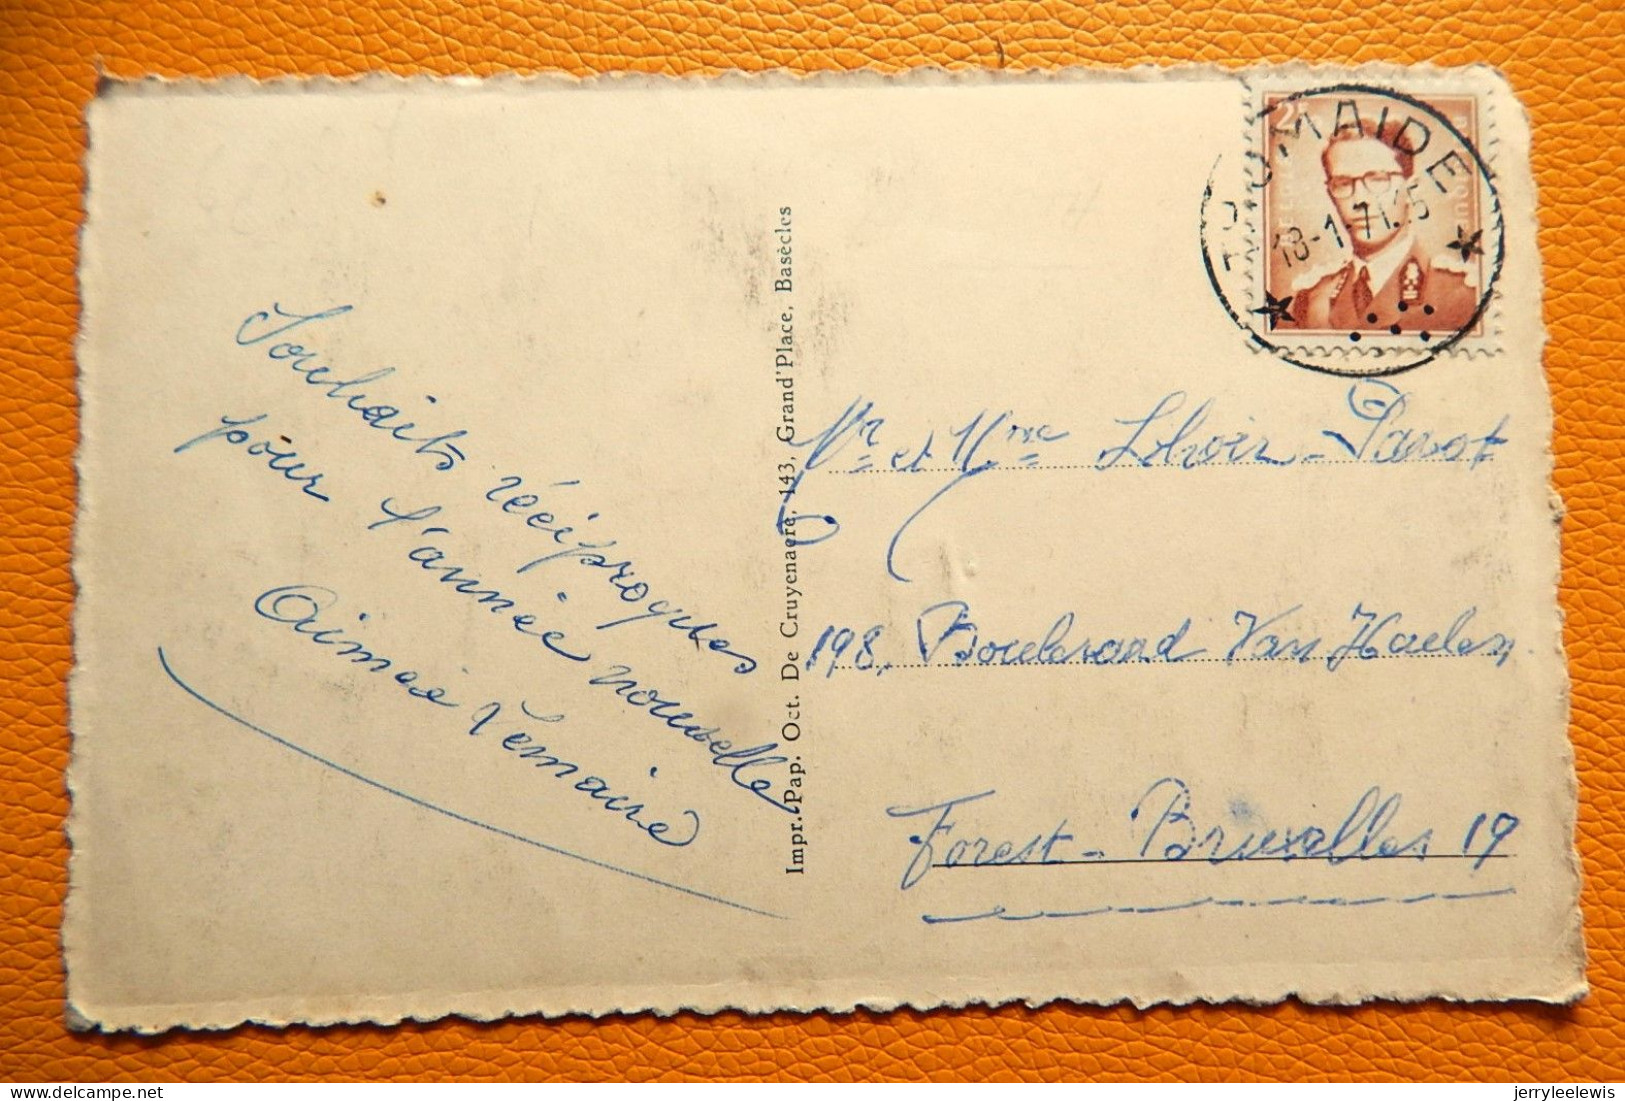 Souhaits réciproques
pour l'année nouvelle
Aimée Lemaire
Impr. Pap. Oct. De Cruyenaere, 143, Grand'Place, Basècles
2F
TOURMAIDE
18-1-71
Mr et Mme Lhoir-Pavot
198, Boulevard Van Haelen
Forest-Bruxelles 19
delcampe.net
jerryleelewis